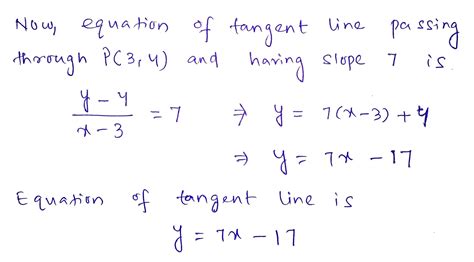 Now, equation of tangent line passing
through P(3,4) and having slope 7 is
y - 4 / x - 3 = 7 ⇒ y = 7(x-3) + 4
⇒ y = 7x - 17
Equation of tangent line is
y = 7x - 17